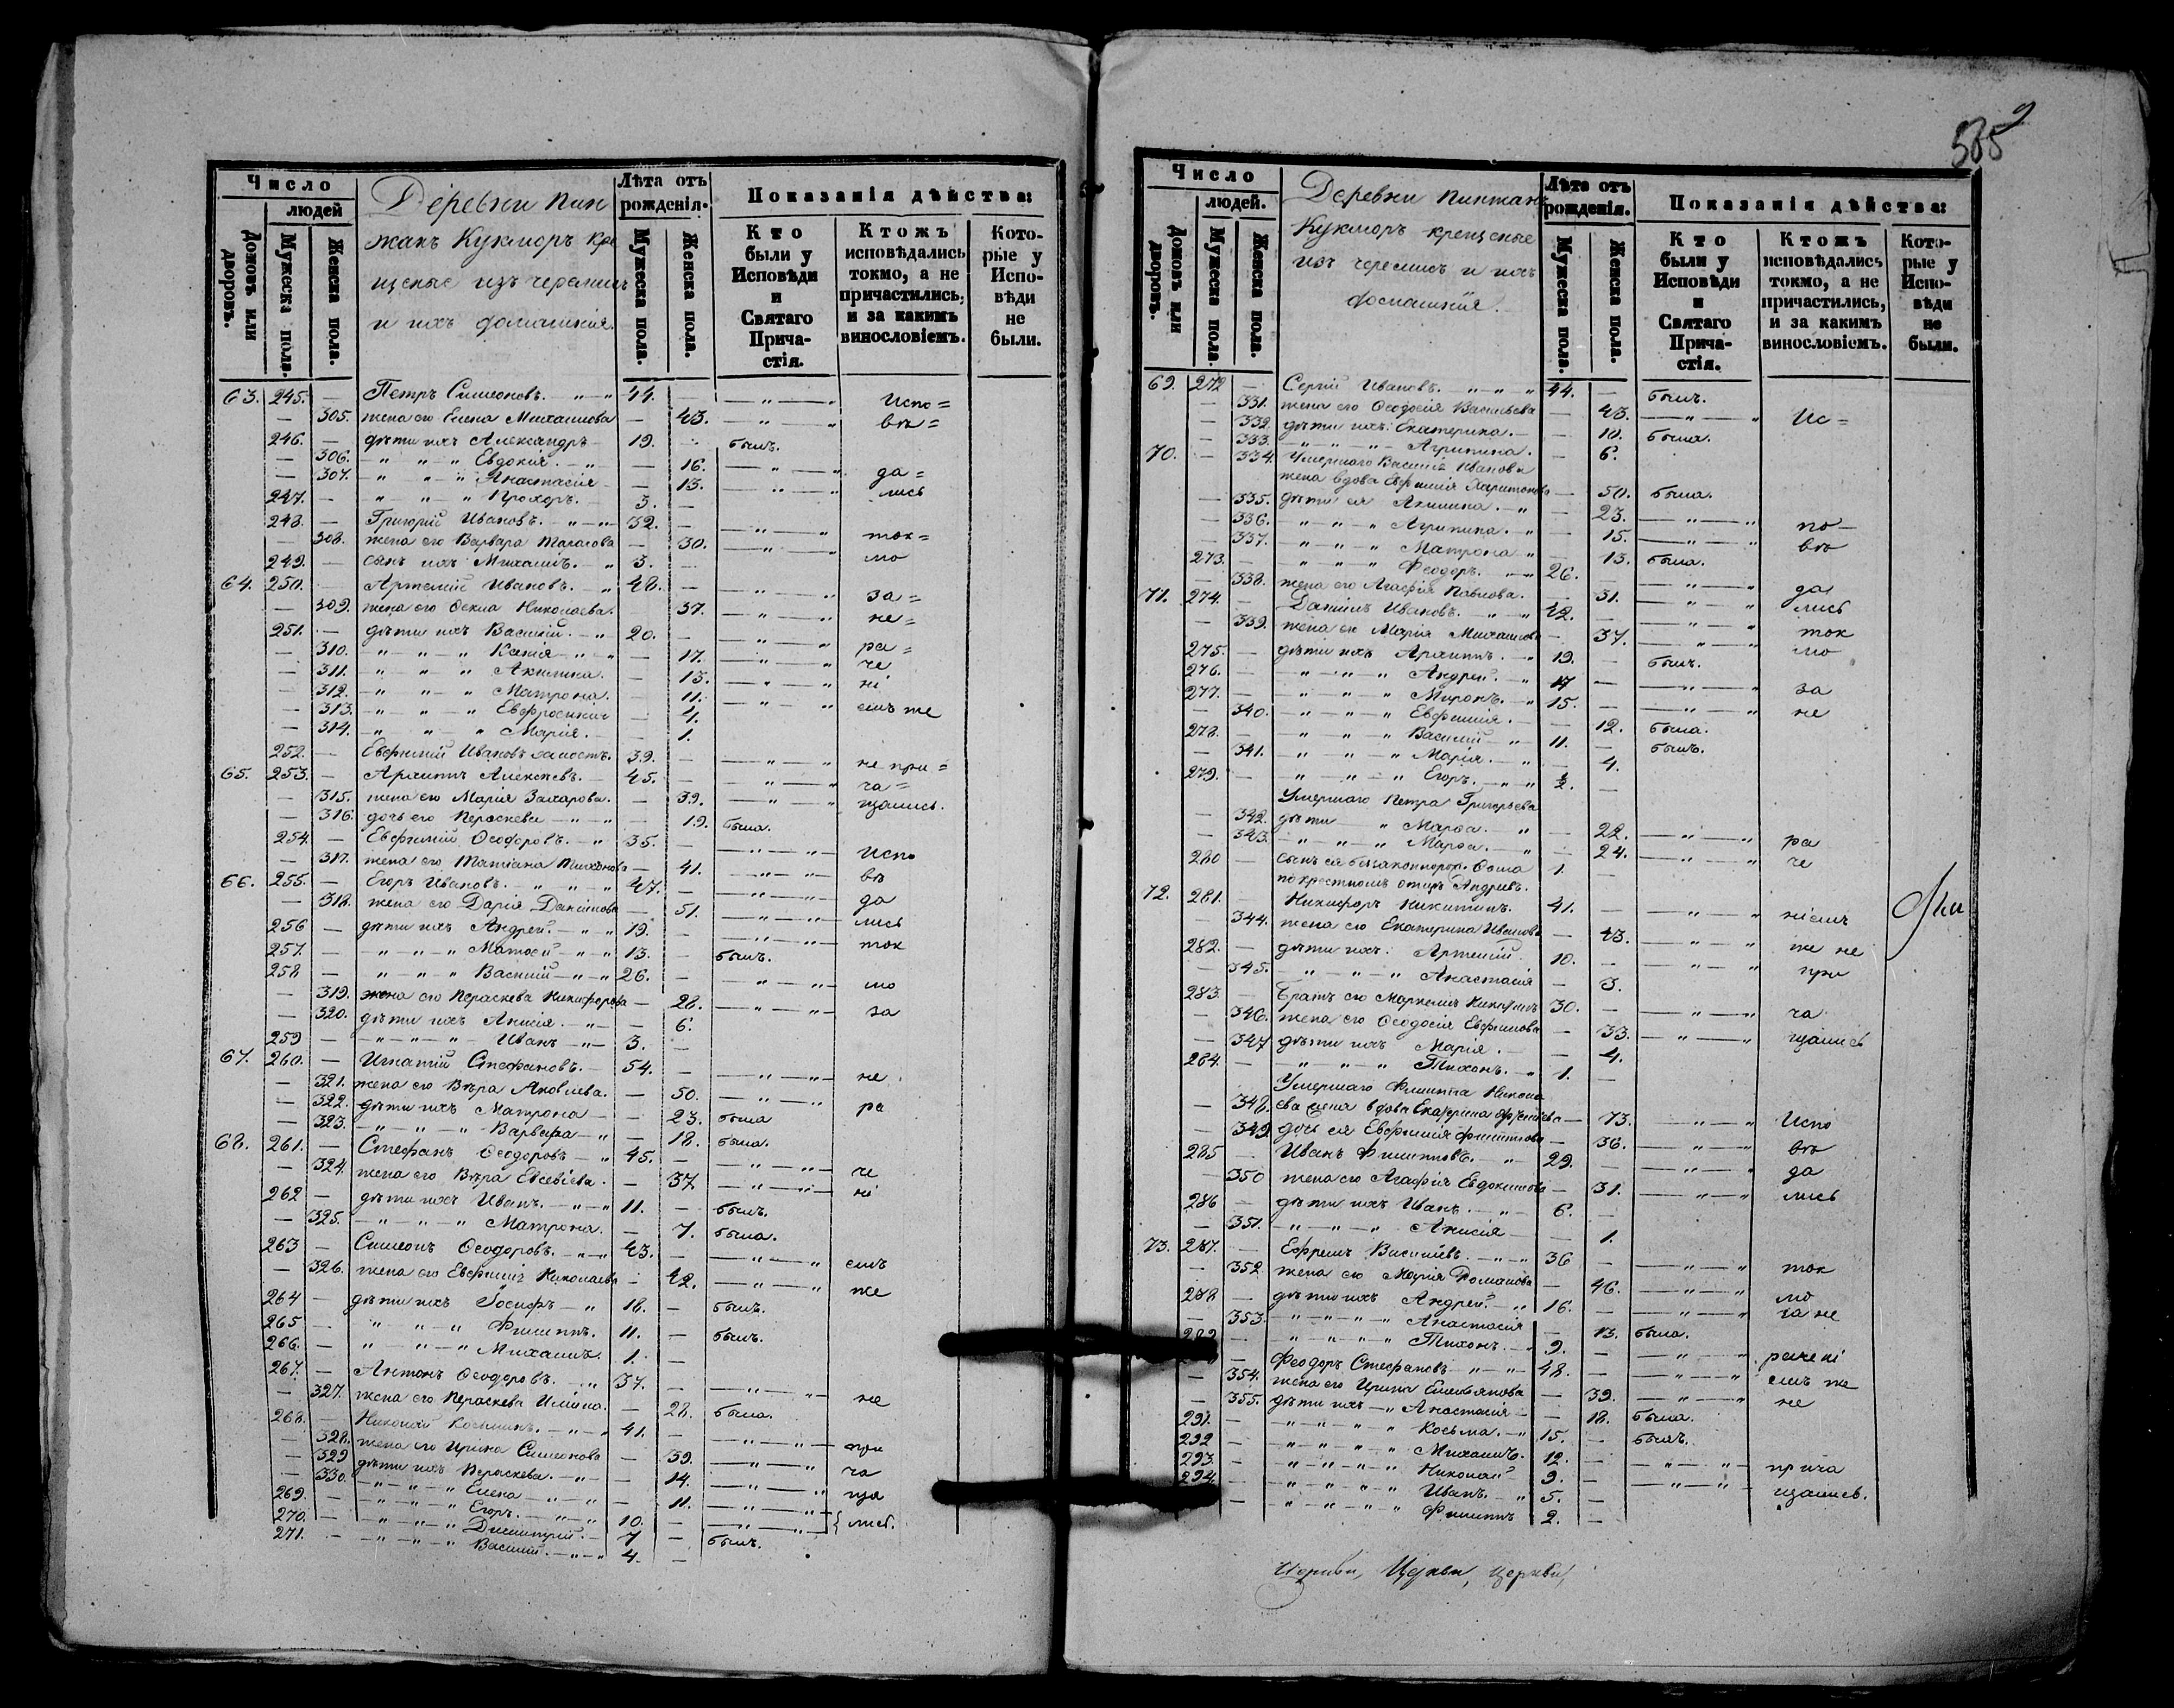 585
Число
людей
Домовъ или дворовъ.
Мужеска пола.
Женска пола.
Деревни Пин
жанъ Кукморъ кре
щеные изъ черемисъ
и ихъ домашнія.
Лѣта отъ рожденія.
Мужеска пола.
Женска пола.
Показанія дѣйства:
Кто были у Исповѣди и Святаго Причастія.
Ктожъ исповѣдались токмо, а не причастились, и за какимъ винословіемъ.
Которые у Исповѣди не были.
63. 245. — Петръ Симеоновъ. 44. — Испо=
— 305. жена его Елена Михаилова — 43. вѣ=
246. — дѣти ихъ Александръ 19. былъ.
— 306. Евдокія — 16. да=
— 307. Анастасія — 13. лись
247. — Прохоръ. 3. —
248. — Григорій Ивановъ. 32. — ток=
— 308. жена его Варвара Тарасова — 30. мо
249. — сынъ ихъ Михаилъ. 3. —
64. 250. — Артемій Ивановъ. 48. — за=
— 309. жена его Фекла Николаева. — 37. не=
251. — дѣти ихъ Василій 20. — ра=
— 310. Ксенія — 17. че
— 311. Акилина. — 13. ні
— 312. Матрона. — 11. емъ же
— 313. Евфросинія — 4.
— 314. Марія. — 1.
252. — Евфимій Ивановъ холостъ. 39. — не при=
65. 253. — Архиппъ Алексѣевъ. 45. — ча=
— 315. жена его Марія Захарова. — 39. щались.
— 316. дочь его Параскева — 19. была.
254. — Евфимій Ѳеодоровъ. 35. — Испо
— 317. жена его Татіана — 41. вѣ
66. 255. — Егоръ Ивановъ. 47. — да
— 318. жена его Дарія Данилова — 51. лись
256 — дѣти ихъ Андрей. 19. — ток
257. — Матѳей 13. — былъ.
258 — Василій 26. — мо
— 319. жена его Параскева Никифорова — 28. за
— 320. дѣти ихъ Анисія. — 6.
259 — Иванъ 3. —
67. 260. — Игнатій Стефановъ. 54. — не
— 321. жена его Вѣра Яковлева. — 50. ра
— 322. дѣти ихъ Матрона — 23. была
— 323. Варвара — 18. была.
68. 261. — Стефанъ Ѳеодоровъ 45. — че
— 324. жена его Вѣра Евсевіева. — 37 ні
262 — дѣти ихъ Иванъ. 11. — былъ.
— 325. Матрона. — 7. была.
263 — Симеонъ Ѳеодоровъ. 43. — емъ
— 326. жена его Евфимія Николаева — 42. же
264 — дѣти ихъ Іосифъ 18. — былъ.
265 — Филиппъ. 11. — былъ.
266. — Михаилъ. 1. —
267. — Антонъ Ѳеодоровъ. 37. — не
— 327. жена его Параскева Ильина. — 28. была.
268. — Николай Косьминъ. 41. — при
— 328. жена его Ирина Симеонова — 39. ча
— 329 дѣти ихъ Параскева. — 14. ща
— 330. Елена — 11. лись.
269. — Егоръ. 10. —
270. — Димитрій. 7 — былъ.
271. — Василій. 4. —
Число
людей.
Домовъ или дворовъ.
Мужеска пола.
Женска пола.
Деревни Пинжанъ
Кукморъ крещеные
изъ черемисъ и ихъ
домашнія.
Лѣта отъ рожденія.
Мужеска пола.
Женска пола.
Показанія дѣйства:
Кто были у Исповѣди и Святаго Причастія.
Ктожъ исповѣдались токмо, а не причастились, и за какимъ винословіемъ.
Которые у Исповѣди не были.
69. 272 — Сергій Ивановъ. 44. — былъ.
— 331. жена его Ѳеодосія Васильева — 43. Ис=
— 332. дѣти ихъ: Екатерина. — 10. была.
— 333. Агрипина. — 6.
70. — 334. Умершаго Василія Иванова
жена вдова Евфимія Харитонова — 50. была.
— 335. дѣти ея Акилина. — 23. по—
— 336. Агрипина. — 15. вѣ
— 337. Матрона — 13. была.
273. — Ѳеодоръ. 26. — да
— 338. жена его Агафія Павлова. — 31. лись
71. 274. — Даніилъ Ивановъ. 42. — ток
— 339. жена его Марія Михаилова — 37. мо
275. — дѣти ихъ Архиппъ. 19. — былъ.
276. — Андрей. 17 — за
277. — Миронъ. 15. — не
— 340. Евфимія. — 12. была.
278. — Василій 11. — былъ.
— 341. Марія. — 4.
279. — Егоръ. 2. —
Умершаго Петра Григорьева
— 342. дѣти Марѳа. — 22. ра
— 343. Марѳа. — 24. че
280 — сынъ ея беззаконнорож. Ѳома 1. —
по крестномъ отцѣ Андреевъ.
72. 281. Никифоръ Никитинъ. 41. — ніемъ
— 344. жена его Екатерина Иванова — 43. же не
282. — дѣти ихъ. Артемій. 10. — при
— 345. Анастасія — 3.
283. — Братъ его Маркелъ Никитинъ 30. — ча
— 346. жена его Ѳеодосія Евфимова — 33. щались
— 347 дѣти ихъ Марія. — 4.
284. — Тихонъ. 1. —
Умершаго Филиппа
— 348. жена вдова Екатерина — 73. Испо
— 349 дочь ея Евфимія Филиппова — 36. вѣ
285 — Иванъ Филипповъ. 29. — да
— 350 жена его Агафія Евдокимова — 31. лись
286 — дѣти ихъ Иванъ. 6. —
— 351. Анисія — 1.
73. 287. — Ефремъ Васильевъ. 36 — ток
— 352 жена его Марія Романова — 46. мо
288 — дѣти ихъ Андрей. 16. — за не
— 353. Анастасія — 13. была.
289 — Тихонъ. 9. — рачені
— Ѳеодоръ Стефановъ 48. — емъ же
— 354. жена его Ирина Емельянова — 39. не
— 355. дѣти ихъ Анастасія — 18. была.
291. — Косьма. 15. — былъ.
292 — Михаилъ. 12. — прича
293. — Николай 9. — щались.
294. — Иванъ. 5. —
— Филиппъ 2. —
Церкви, Церкви, Церкви,